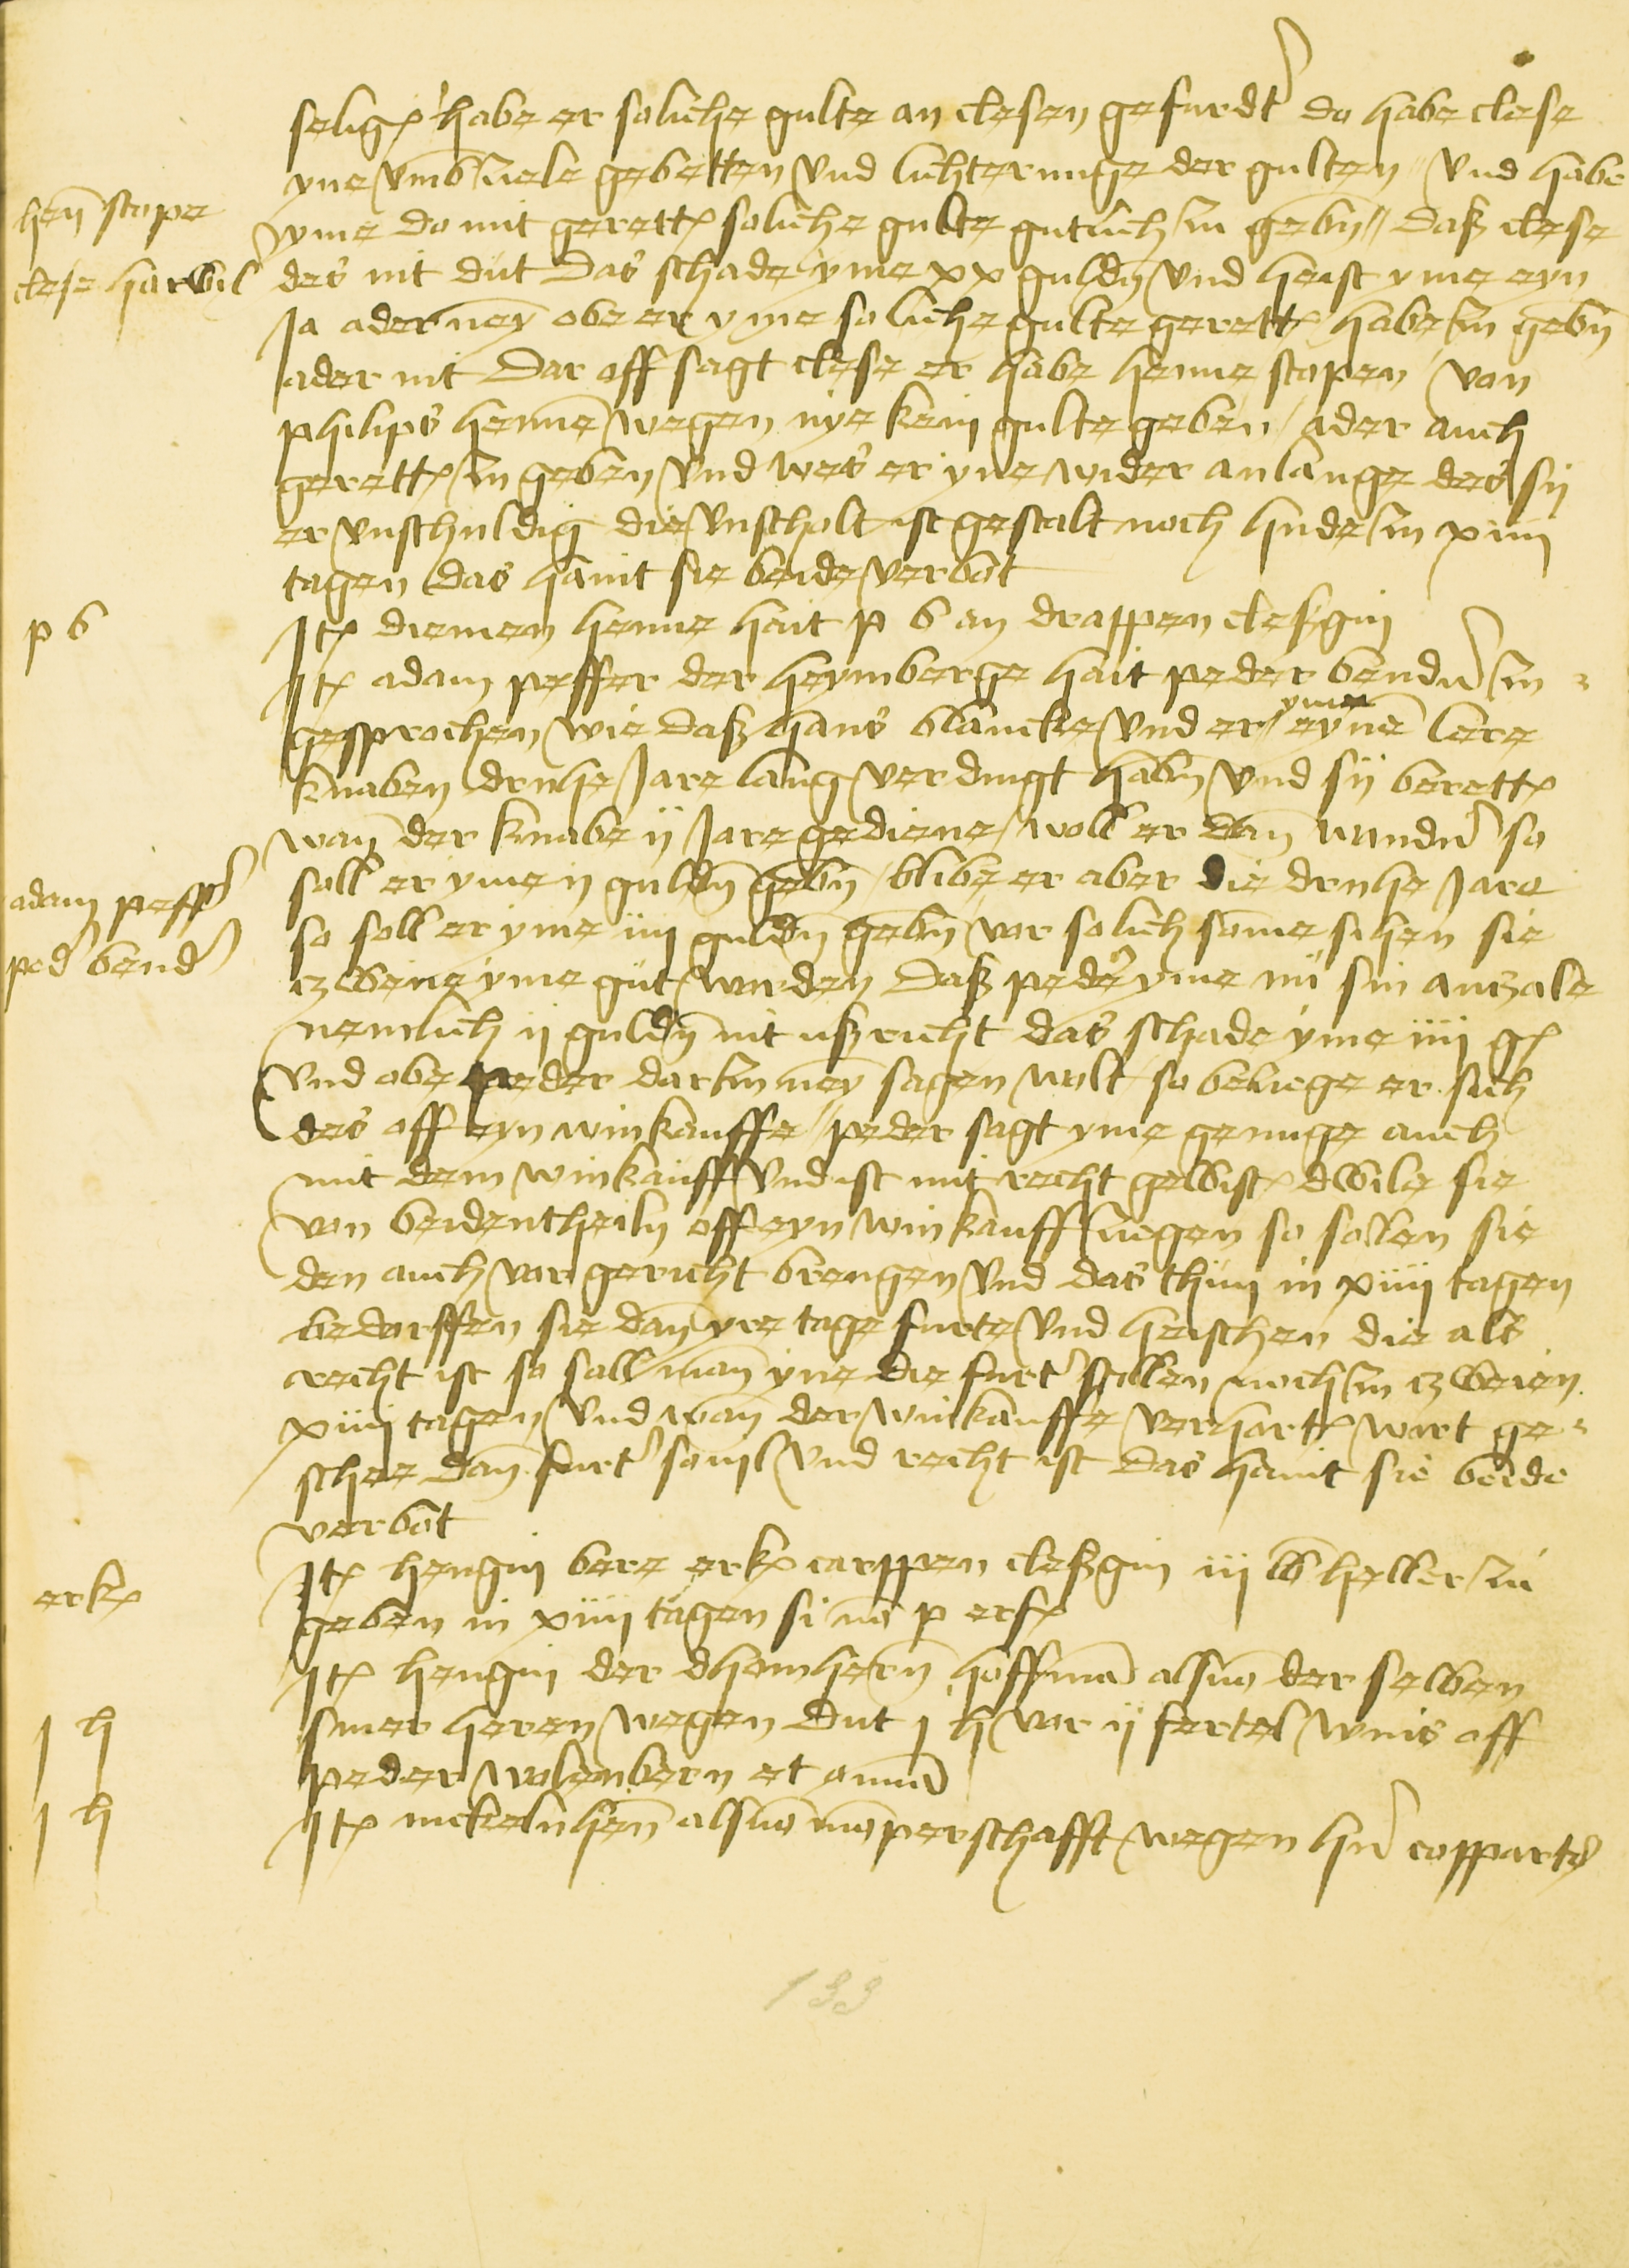 selig(e) habe er soliche gulte an clesen gefurdt(er) do habe clese
yne umb ziele gebetten und lichterunge der gulten // und habe
henn stope
yme do mit gerett(et) soliche gulte gutlich zu gebn // daß clese
clese harwil
des nit dut das schade yme xx guldn und heist yme eyn
Ja ader ney obe er yme soliche gulte gerett(et) habe zu gebn
ader nit Dar off sagt clese er habe henne stopen von
philips henne wegen nye kein gulte geben / ader auch
gerett(et) zu geben und wes er yne wider anlange des sij
er unschuldig die unscholt ist gestalt noch hude zu xiiii
tagen das hant sie beide verbot
p b
It(em) diemen henne hait p b an drappen clesgin
It(em) adam peffer der heymberge hait peder bend(er) zu =
gesprochen wie daß hans blancke und er yme eynen lere
knaben druhe Jare lang verdingt habn und sij berett(et)
wan der knabe ij Jare gediene / woll er dan wand(er) so
adam peff(er)
soll er yme ij guldn gebn / blibe er aber die druhe Jare
ped(er) bend(er)
so soll er yme iiij guldn gebn / vor solich some sihen sie
zwene yme gut wurden Daß peder yme nu sin anzale
nemlich ij guldn nit ußricht das schade yme iiii g(ulden)
und obe peder darzu ney sagen wolt so beziege er sich
des off eyn winkauffe // peder sagt yme genuge auch
mit dem winkauff und ist mit recht gewist dwile sie
von beidentheiln off eyn winkauff ziegen so sollen sie
den auch vor gericht brengen und das thun in xiiii tagen
bedorffen sie dan yre tage furte und heischen die als
recht ist so sall man yne die furt(er) stellen noch zu zweien
xiiii tagen und wan der winkauffe verhort(et) wirt ge =
schee dan furt(er) sovil und recht ist das hant sie beide
verbot
erk(ennt)
It(em) hengin bere erk(ennt) carppen cleßgin iij lb heller zu
geben in xiiii tagen si no p erf(olgt)
It(em) hengin der dhomhern hoffman als von der selben
j h
siner heren wegen dut j h vor ij fertel wins off
peder wolenbern et omnia
j h
It(em) nickeln hen als von monperschafft wegen hen(er) copparts
133